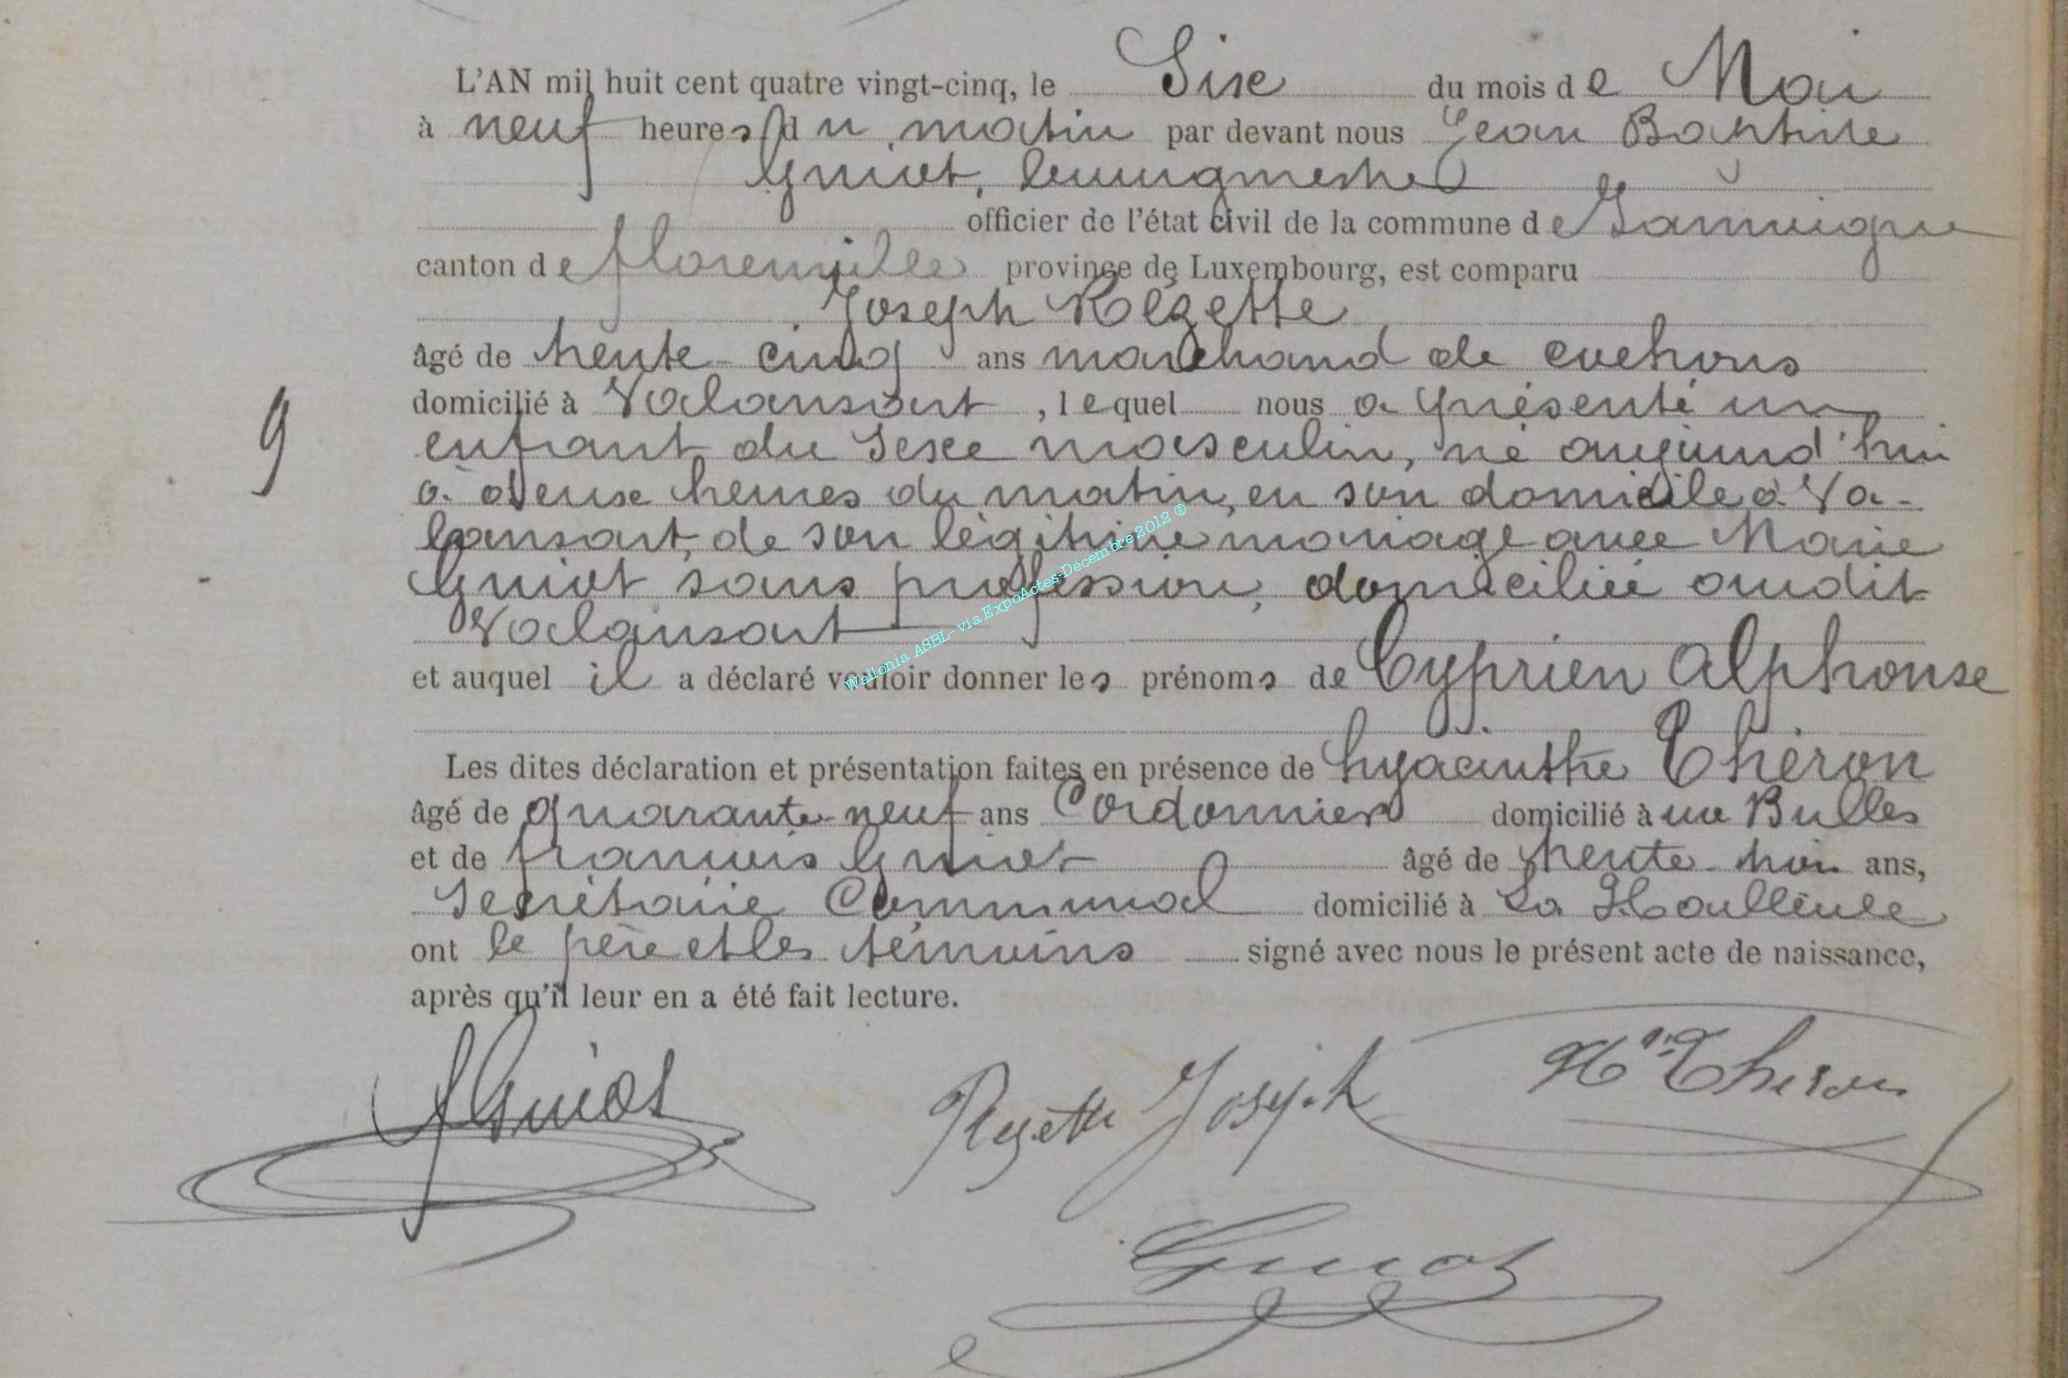 L'AN mil huit cent quatre vingt-cinq, le Six du mois de Mai
à neuf heures du matin par devant nous Jean Baptiste
Guiot, bourgmestre
officier de l'état civil de la commune de Jamoigne
canton de florenville province de Luxembourg, est comparu
Joseph Rézette
âgé de trente cinq ans marchand de cochons
domicilié à Valansart, lequel nous a présenté un
enfant du sexe masculin, né aujourd'hui
à deux heures du matin, en son domicile à Va-
lansart, de son légitime mariage avec Marie
Guiot sans profession, domiciliée audit
Valansart
et auquel il a déclaré vouloir donner les prénoms de Cyprien Alphonse
Les dites déclaration et présentation faites en présence de hyacinthe Théron
âgé de quarante-neuf ans Cordonnier domicilié à aux Bulles
9
et de françois Guiot âgé de trente trois ans,
Secrétaire Communal domicilié à La Hailleule
ont le père et les témoins signé avec nous le présent acte de naissance,
après qu'il leur en a été fait lecture.
fGuiot Rezette Joseph Hte Theron
Guiot
Wallonia ASBL - via ExpoActes-Décembre 2012 ®